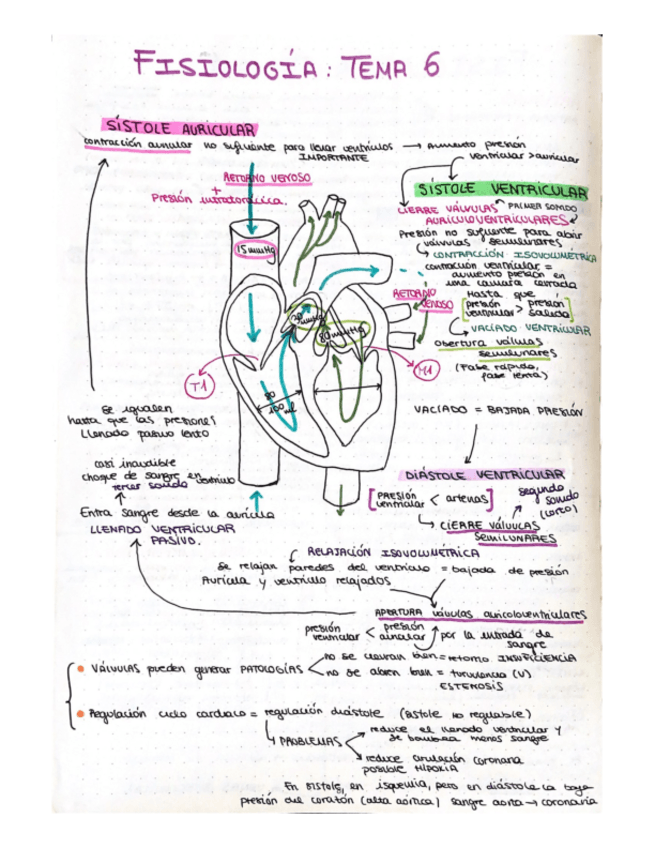 FISIOLOGÍA: TEMA 6
SÍSTOLE AURICULAR
contracción auricular no suficiente para llenar ventrículos → Aumento presión
IMPORTANTE
ventricular > auricular
RETORNO VENOSO
+
Presión intratorácica.
SÍSTOLE VENTRICULAR
CIERRE VÁLVULAS PRIMER SONIDO
AURICULOVENTRICULARES
Presión no suficiente para abrir
válvulas semilunares
CONTRACCIÓN ISOVOLUMÉTRICA
contracción ventricular =
aumento presión en
una cámara cerrada
Hasta que
presión ventricular > presión salida
VACIADO VENTRICULAR
Obertura válvulas
semilunares
(Fase rápida,
fase lenta)
15mmHg
RETORNO
VENOSO
80mmHg
T1
M1
100ml
VACIADO = BAJADA PRESIÓN
se igualen
hasta que las presiones
Llenado pasivo lento
casi inaudible
choque de sangre en ventrículo
tercer sonido
Entra sangre desde la aurícula
LLENADO VENTRICULAR
PASIVO.
DIÁSTOLE VENTRICULAR
[presión ventricular < arterias]
segundo
sonido
(corto)
CIERRE válvulas
SEMILUNARES
RELAJACIÓN ISOVOLUMÉTRICA
Se relajan paredes del ventrículo = bajada de presión
Aurícula y ventrículo relajados
APERTURA válvulas auricoloventriculares
presión ventricular < presión auricular por la entrada de
sangre
• VÁLVULAS pueden generar PATOLOGÍAS
no se cierran bien = retorno INSUFICIENCIA
no se abren bien = turbulencia (V)
ESTENOSIS
• Regulación ciclo cardiaco = regulación diástole (sístole no regulable)
PROBLEMAS
reduce el llenado ventricular y
se bombea menos sangre
reduce circulación coronaria
posible HIPOXIA
En sístole, en isquemia, pero en diástole la baja
presión del corazón (alta aórtica) sangre aorta → coronaria